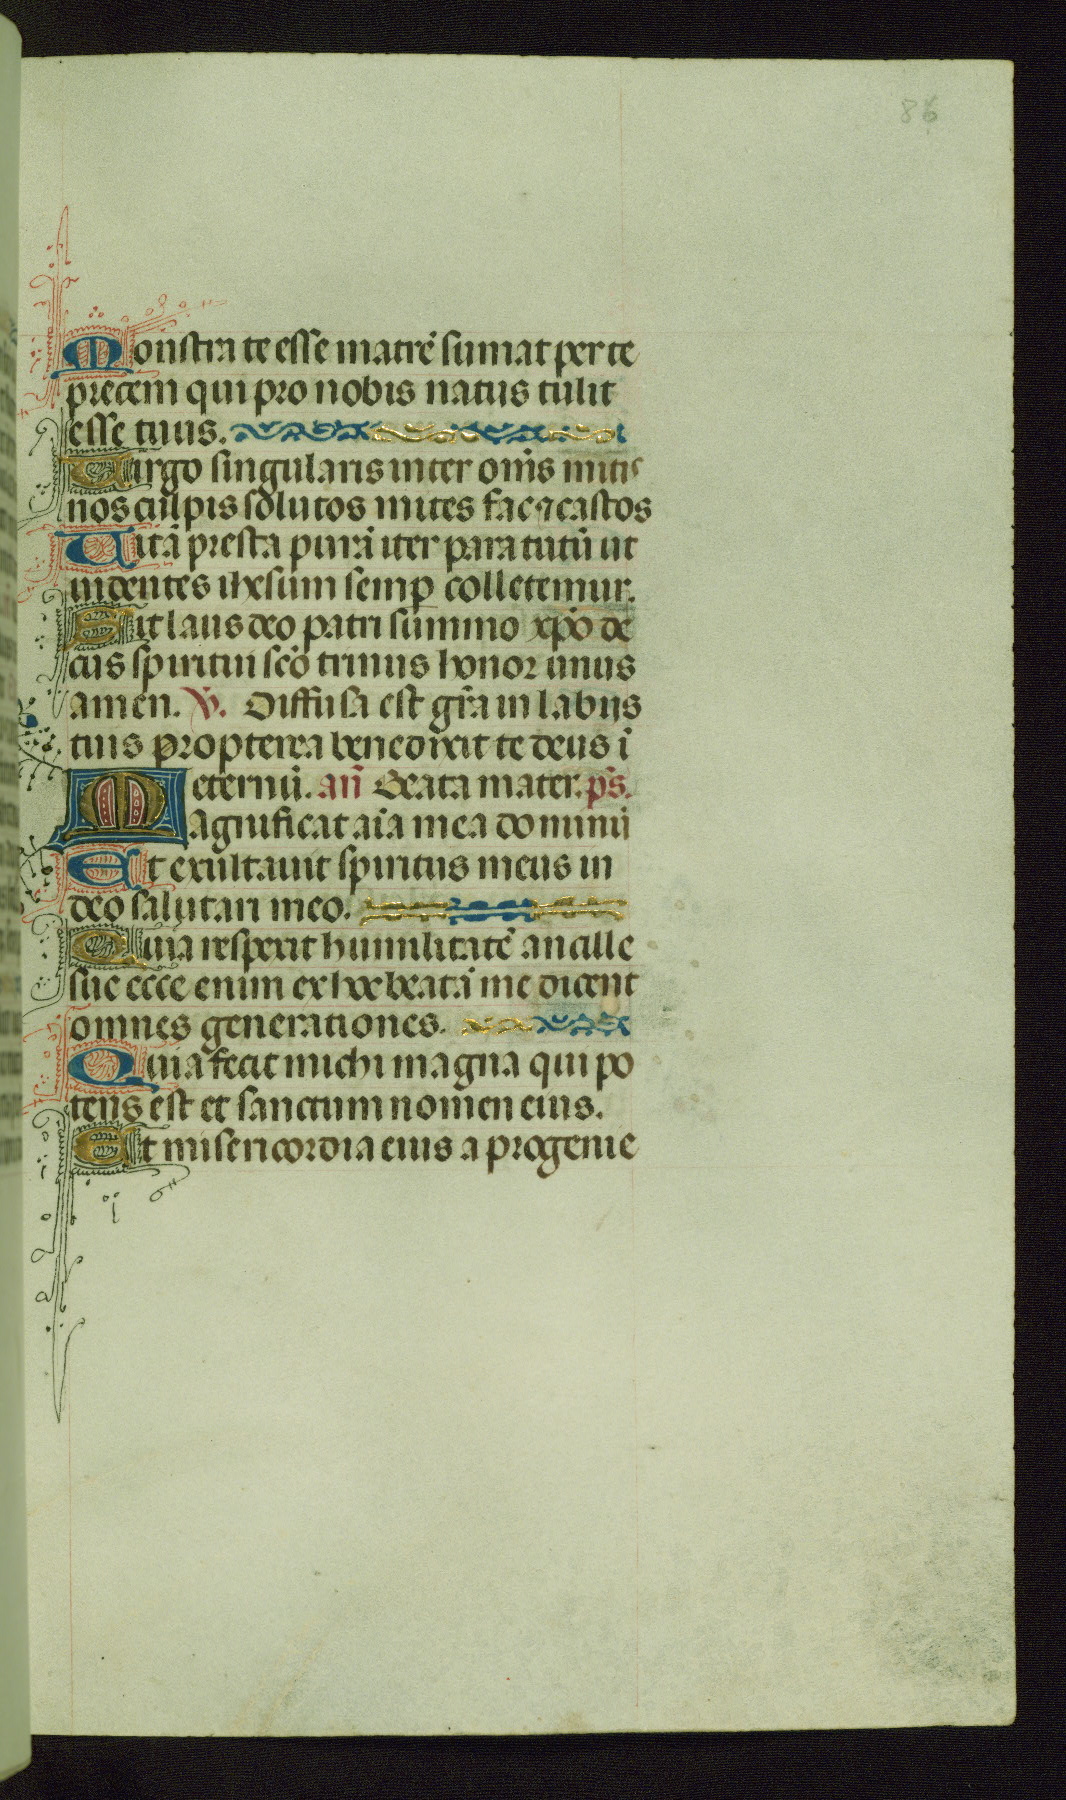 86
Monstra te esse matrē sumat per te
precem qui pro nobis natus tulit
esse tuus.
Uirgo singularis inter om̄s mitis
nos culpis solutos mites fac ⁊ castos
Uitā presta purā iter para tutū ut
uidentes ihesum semꝑ colletemur.
Sit laus deo patri summo xp̄o de
cus spiritui sc̄o trinus honor unus
amen. ℣. Diffusa est gr̄a in labijs
tuis propterea benedixit te deus ī
eternū. an̄ Beata mater. ps̄.
Magnificat aīa mea dominū
Et exultauit spiritus meus in
deo salutari meo.
Quia respexit humilitatē ancille
sue ecce enim ex hoc beatā me dicent
omnes generationes.
Quia fecit michi magna qui po
tens est et sanctum nomen eius.
Et misericordia eius a progenie